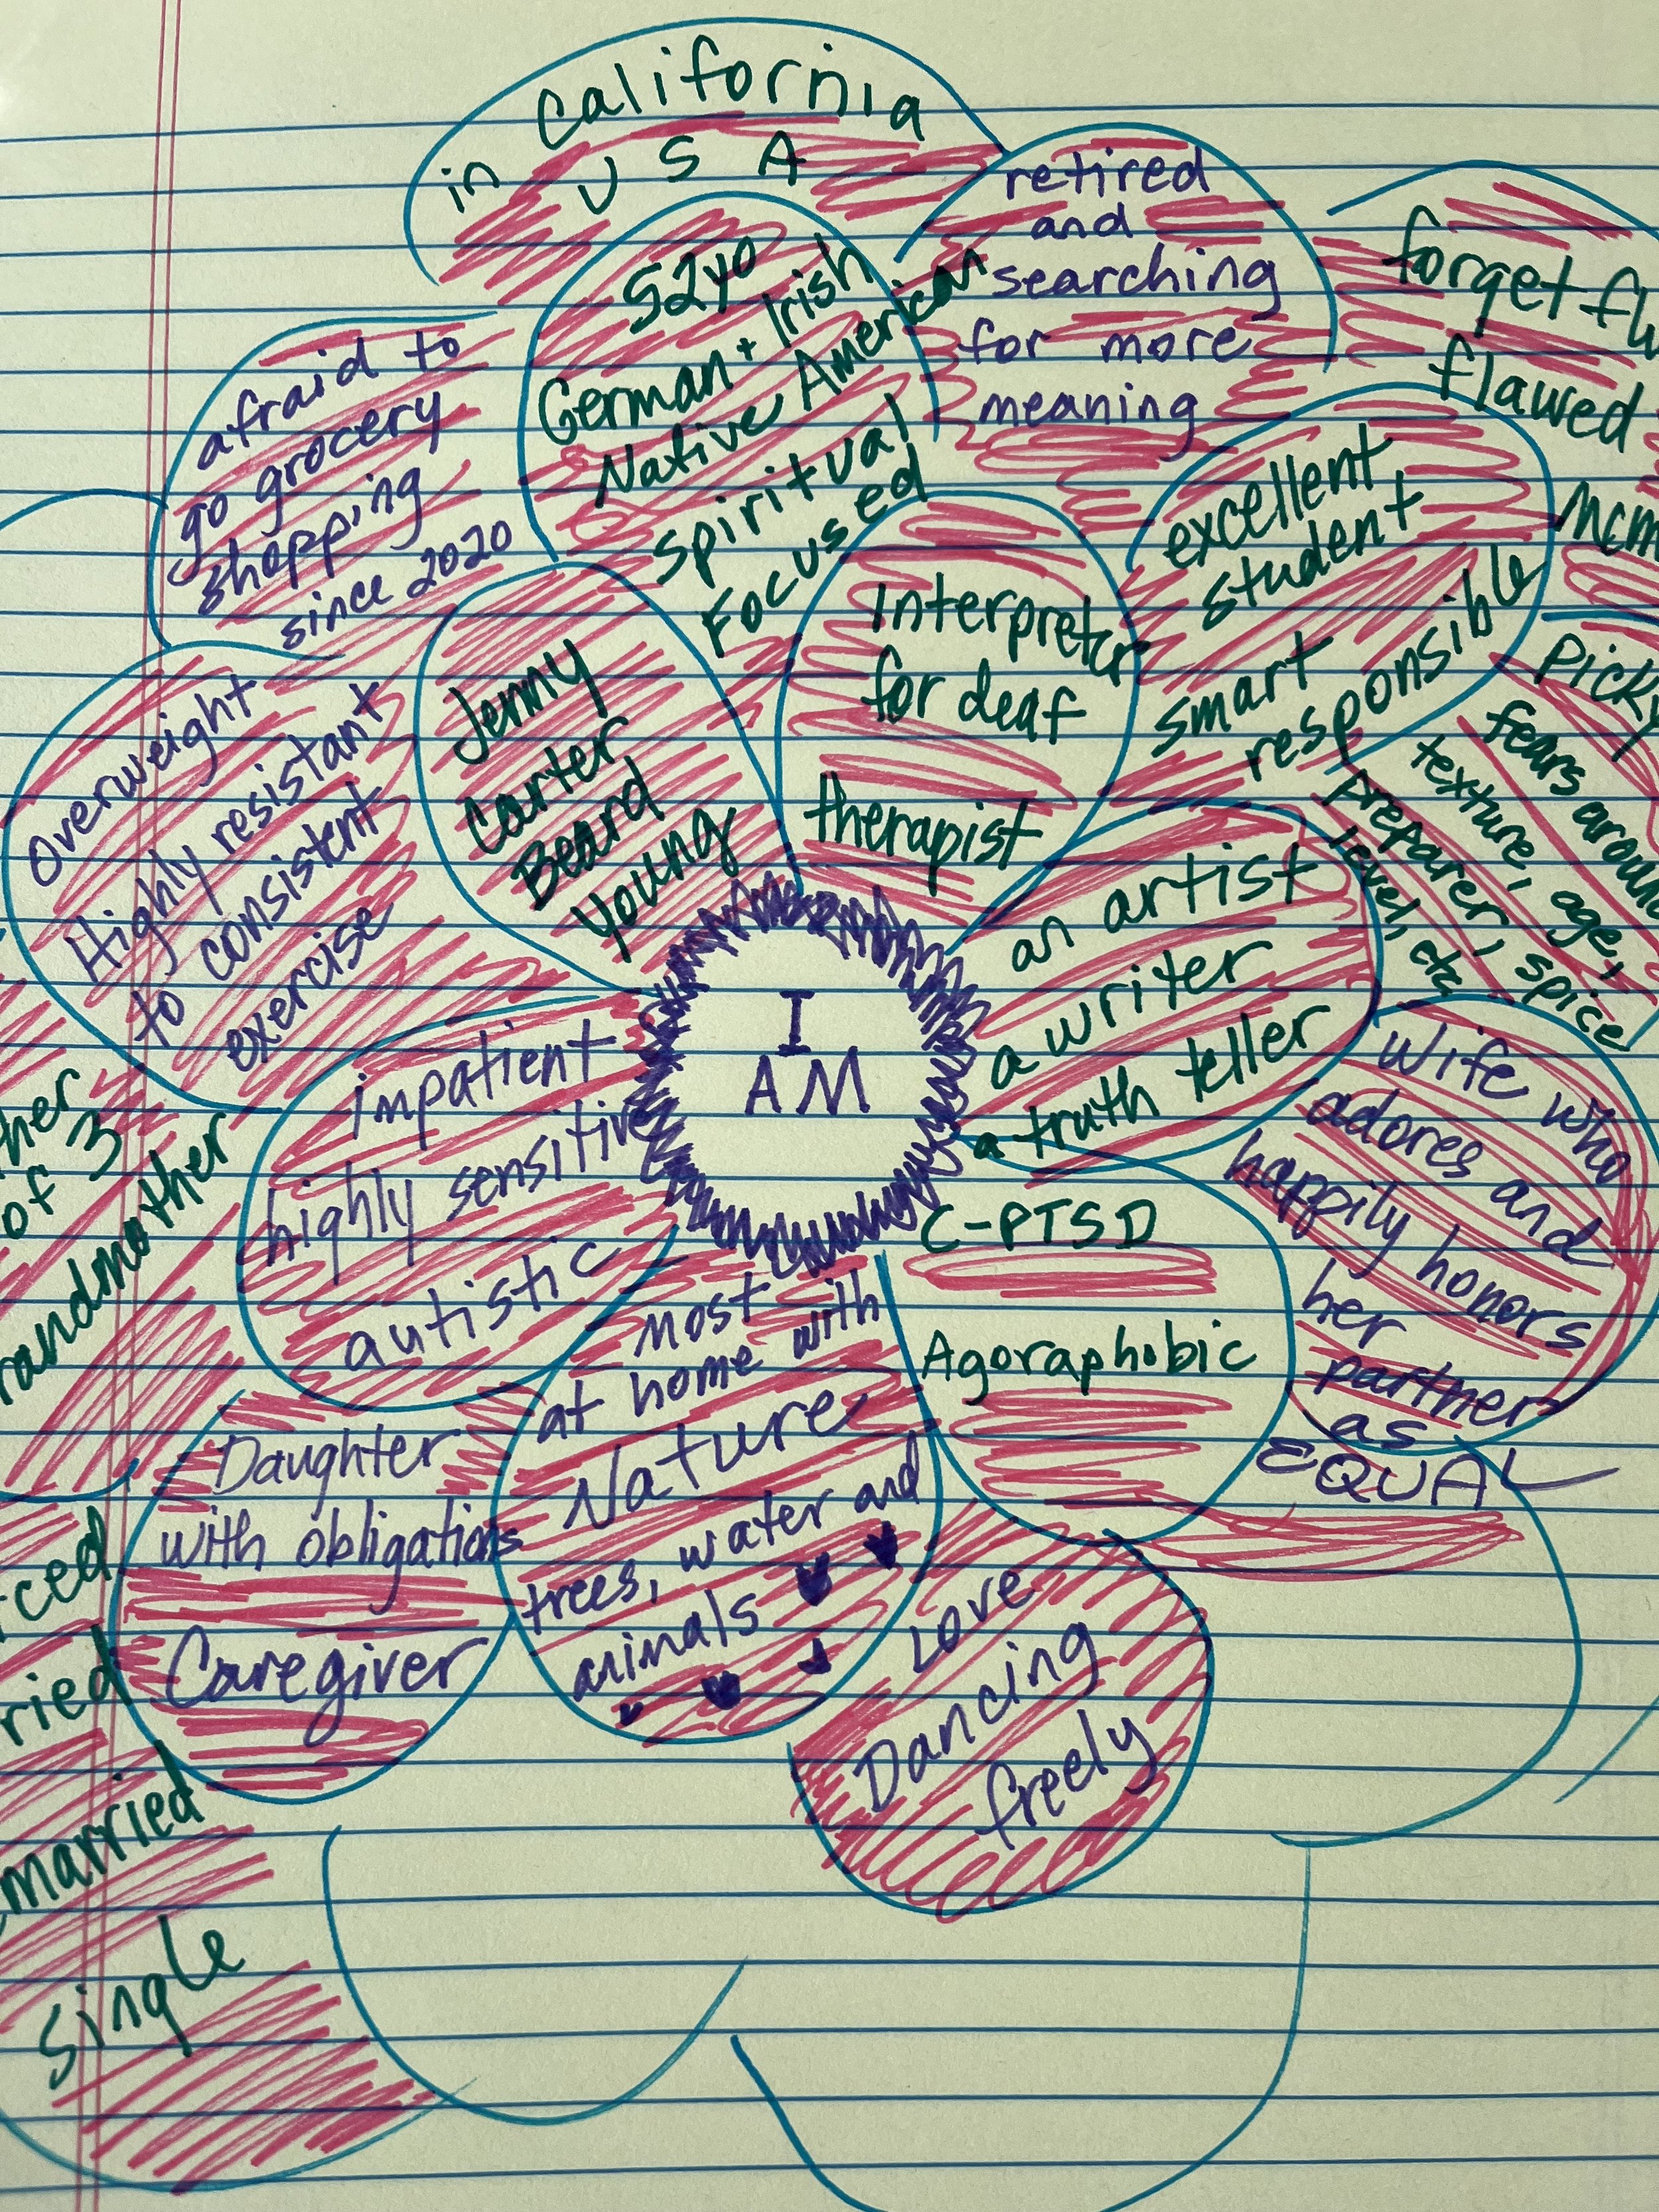 in California
U S A
retired
and
searching
for more
meaning
forget
flawed
52yo
German + Irish
Native American
Spiritual
Focused
afraid to
go grocery
shopping
since 2020
excellent
student
smart
responsible
Interpreter
for deaf
therapist
Jenny
Carter
Beard
Young
Picky
fears around
texture, age,
preparer, spice
level, etc
Overweight
Highly resistant
to consistent
exercise
I
AM
an artist
a writer
a truth teller
Wife who
adores and
happily honors
her
partner
as
EQUAL
impatient
highly sensitive
autistic
of 3
C-PTSD
Agoraphobic
most
at home with
Nature
trees, water and
animals
Daughter
with obligations
Caregiver
Love
Dancing
freely
married
Single